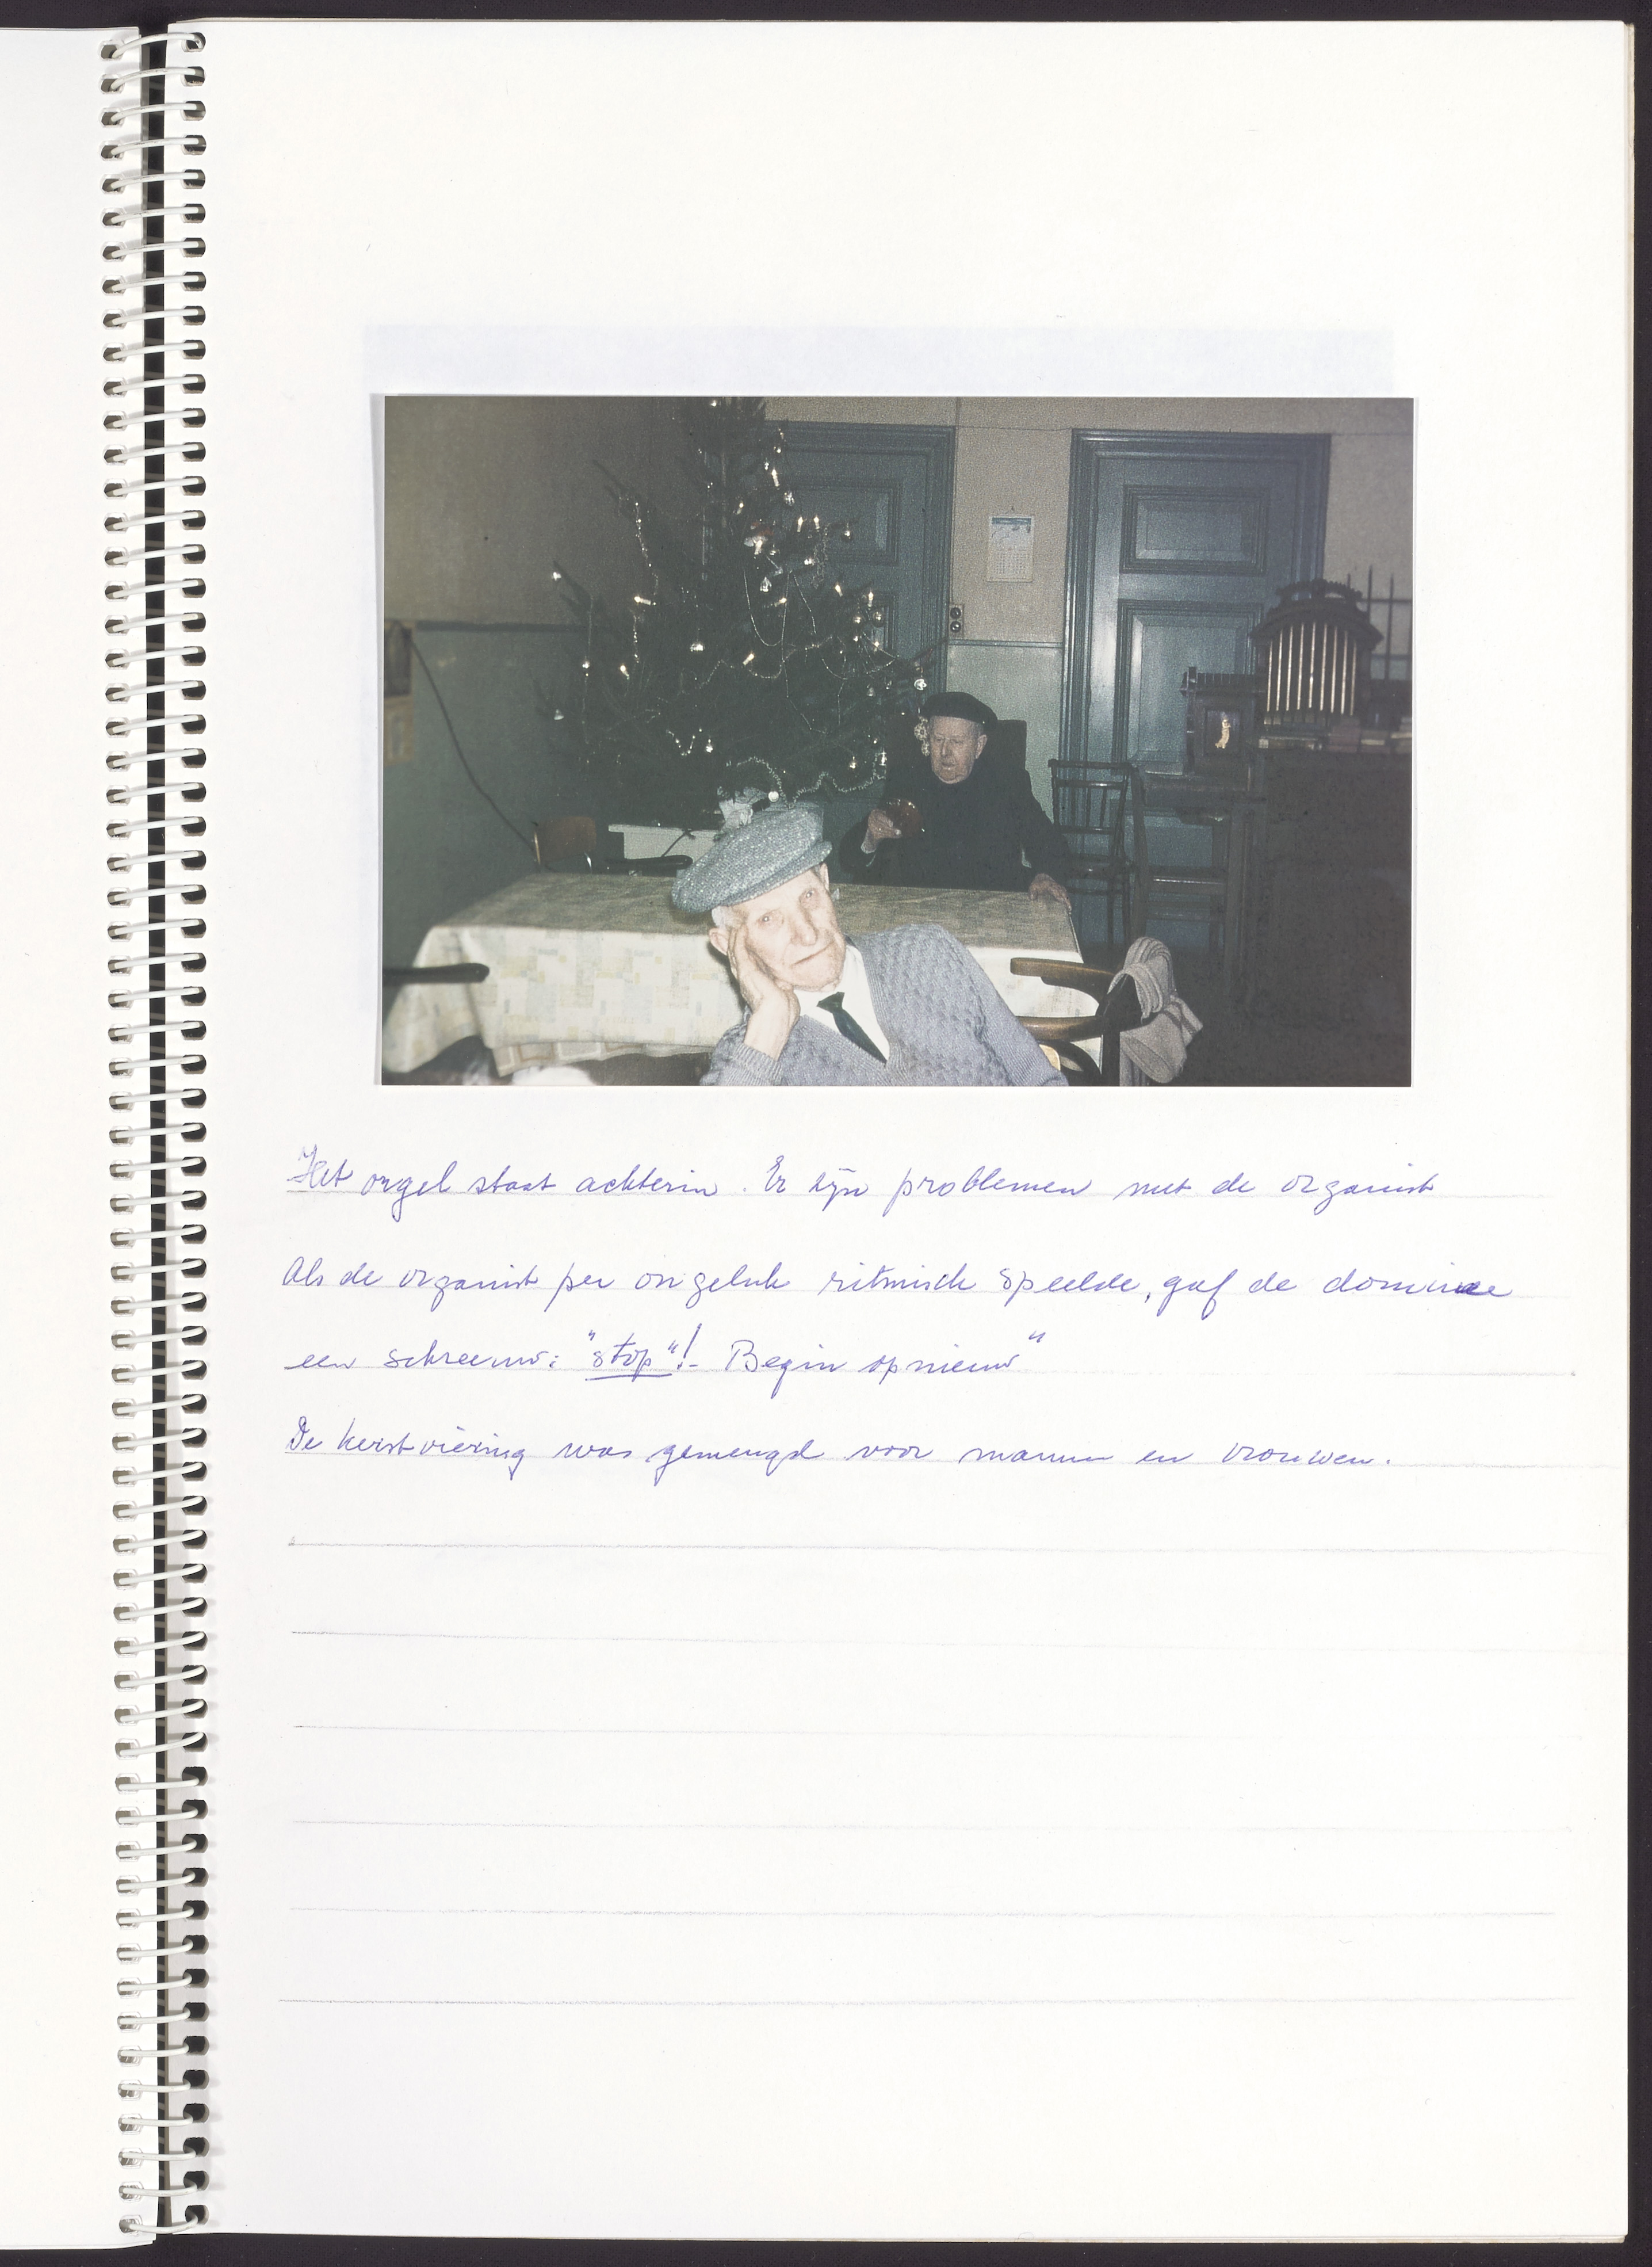 Het orgel staat achterin. Er zijn problemen met de organist
Als de organist per ongeluk ritmisch speelde, gaf de dominee
een schreeuw: "stop"!- Begin opnieuw"
De kerstviering was gemengd voor mannen en vrouwen.